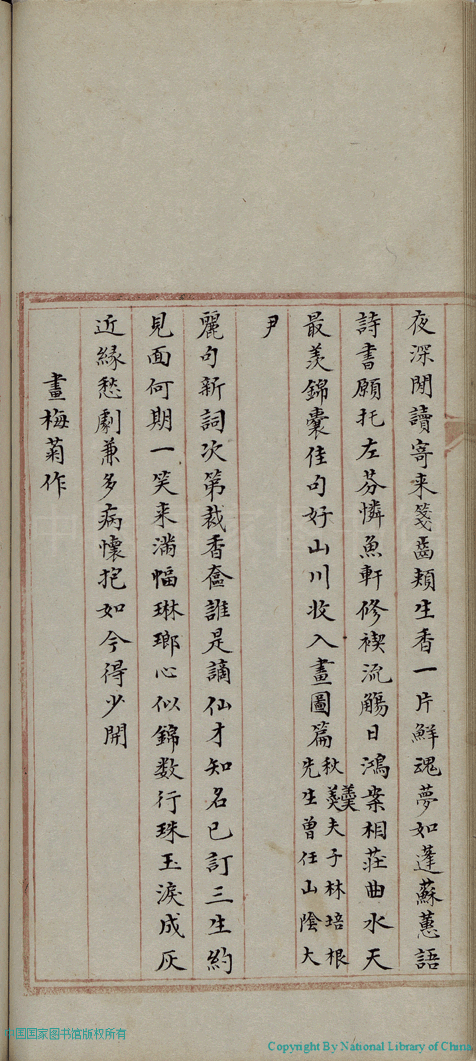 夜深閒讀寄来箋齒頰生香一片鮮魂夢如蓬蘇蕙語
詩書願托左芬憐魚軒修禊流觴日鴻案相莊曲水天
最羨錦囊佳句好山川收入畫圖篇秋羹夫子林培根先生曾任山陰大
尹
麗句新詞次第裁香奩誰是謫仙才知名已訂三生約
見面何期一笑来滿幅琳瑯心似錦数行珠玉淚成灰
近緣愁劇兼多病懷抱如今得少開
畫梅菊作
中国国家图书馆版权所有
Copyright By National Library of China